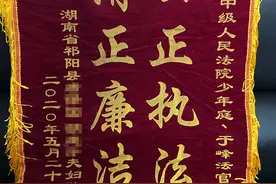 中级人民法院少年庭、于峰法官
正执法
清正廉洁
湖南省祁阳县
夫妇
二〇二〇年五月二十